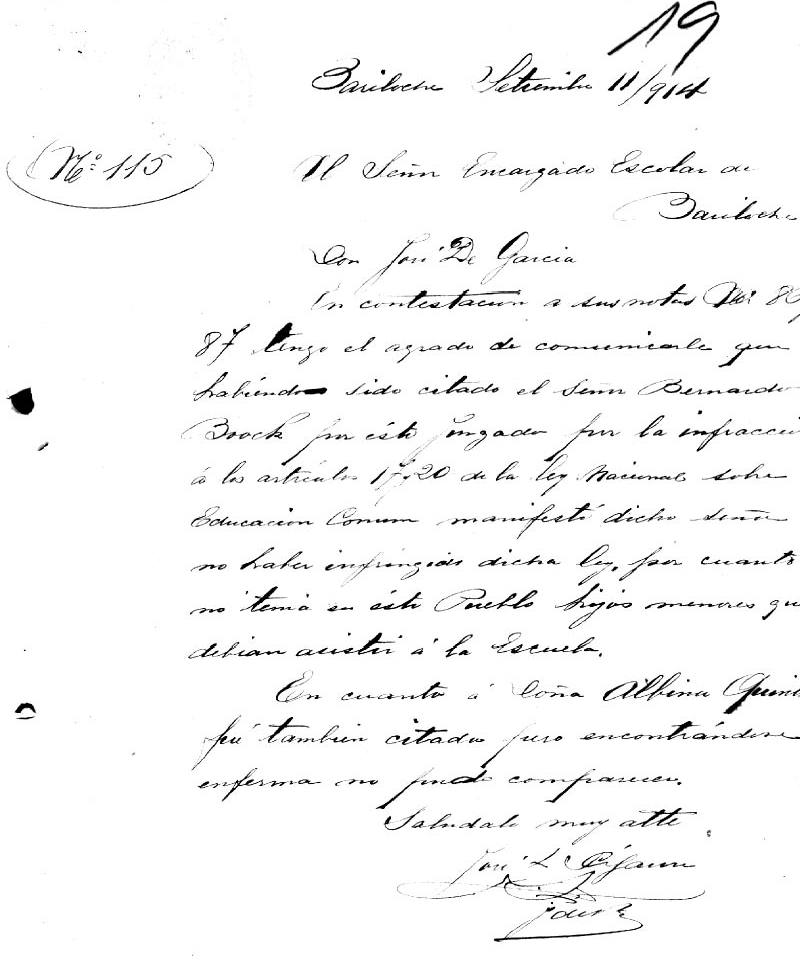 19
Bariloche Setiembre 11/914
Nº 115
Al Señor Encargado Escolar de
Bariloche
Don José De Garcia
En contestacion a sus notas Nos 86
87 tengo el agrado de comunicarle que
habiendo sido citado el Señor Bernardo
Boock por éste Juzgado por la infracció
á los artículos 17 y 20 de la ley Nacional sobre
Educacion Comun manifestó dicho señor
no haber infringido dicha ley, por cuanto
no tenia en éste Pueblo hijos menores qu
debian asistir á la Escuela.
En cuanto á Doña Albina
fué tambien citada pero encontrándose
enferma no pudo comparecer.
Saludale muy atte
José L